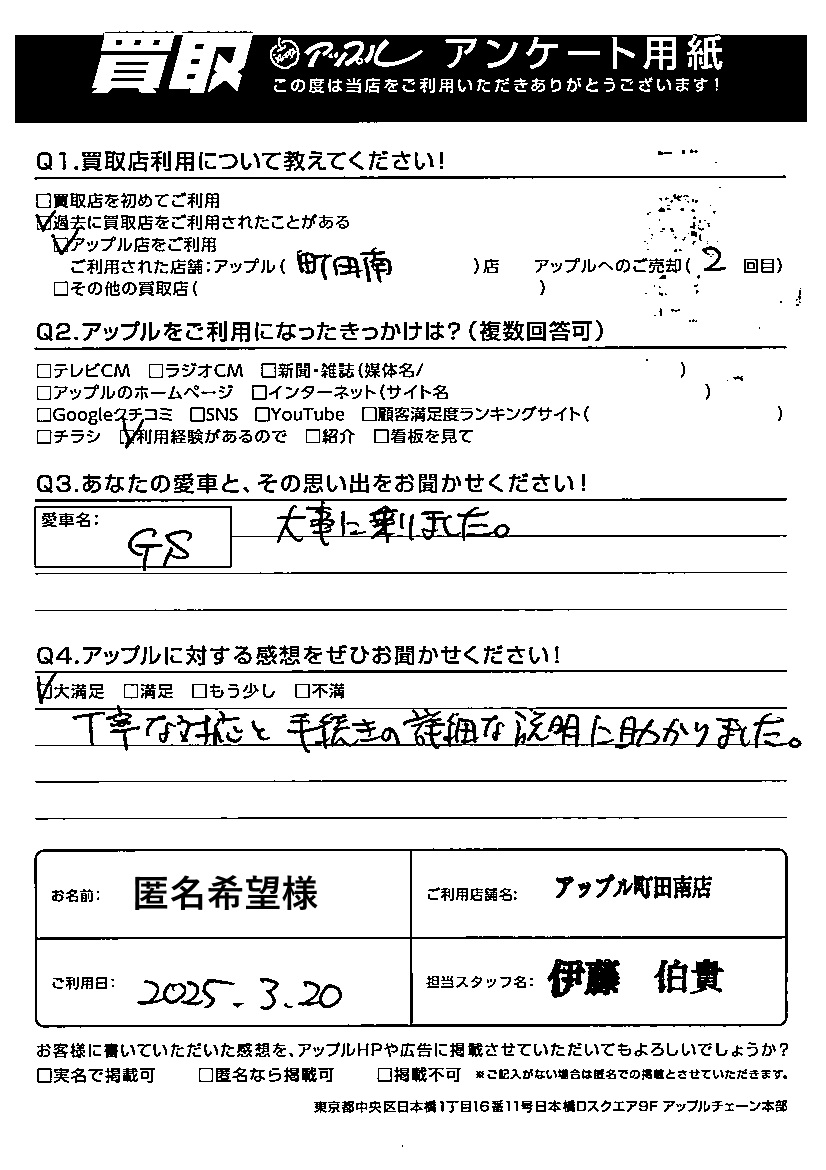 買取 アップル アンケート用紙
この度は当店をご利用いただきありがとうございます!
Q1.買取店利用について教えてください!
□買取店を初めてご利用
☑過去に買取店をご利用されたことがある
☑アップル店をご利用
ご利用された店舗:アップル( 町田南 )店 アップルへのご売却( 2 回目)
□その他の買取店( )
Q2.アップルをご利用になったきっかけは?(複数回答可)
□テレビCM □ラジオCM □新聞・雑誌(媒体名/ )
□アップルのホームページ □インターネット(サイト名 )
□Googleクチコミ □SNS □YouTube □顧客満足度ランキングサイト( )
□チラシ ☑利用経験があるので □紹介 □看板を見て
Q3.あなたの愛車と、その思い出をお聞かせください!
愛車名: GS 大事に乗りました。
Q4.アップルに対する感想をぜひお聞かせください!
☑大満足 □満足 □もう少し □不満
丁寧な対応と手続きの詳細な説明に助かりました。
お名前: 匿名希望様 ご利用店舗名: アップル町田南店
ご利用日: 2025.3.20 担当スタッフ名: 伊藤 伯貴
お客様に書いていただいた感想を、アップルHPや広告に掲載させていただいてもよろしいでしょうか?
□実名で掲載可 □匿名なら掲載可 □掲載不可 ※ご記入がない場合は匿名での掲載とさせていただきます。
東京都中央区日本橋1丁目16番11号日本橋Dスクエア9F アップルチェーン本部